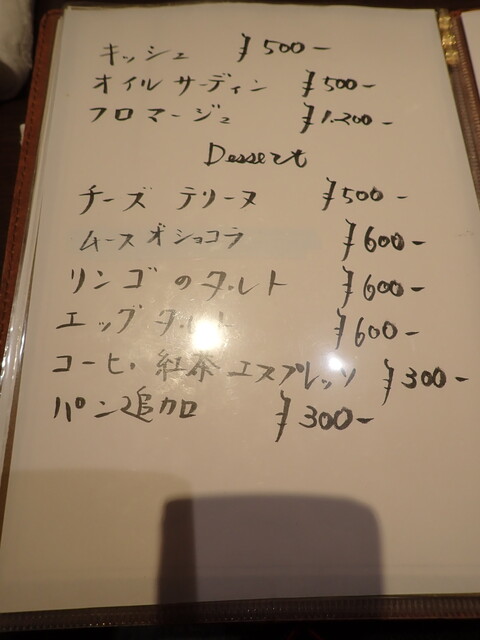 キッシュ ¥500-
オイルサーディン ¥500-
フロマージュ ¥1.200-
Dessert
チーズテリーヌ ¥500-
ムースオショコラ ¥600-
リンゴのタルト ¥600-
エッグタルト ¥600-
コーヒ. 紅茶 エスプレッソ ¥300-
パン追加 ¥300-